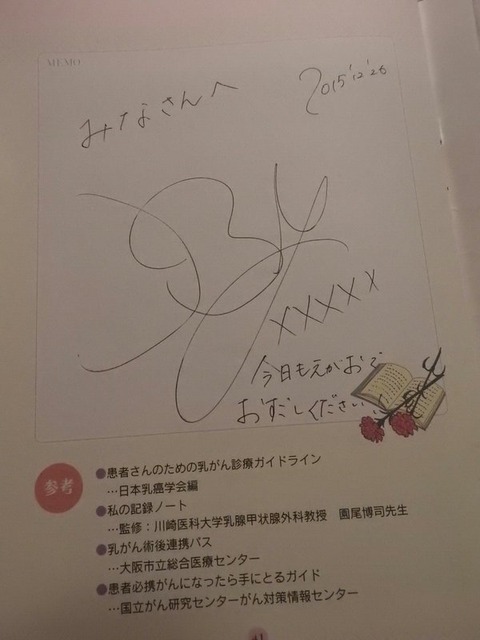 MEMO
みなさんへ
2015'12'26
XXXXX
今日もえがおで
おすごしください!
参考
●患者さんのための乳がん診療ガイドライン
…日本乳癌学会編
●私の記録ノート
…監修：川崎医科大学乳腺甲状腺外科教授 園尾博司先生
●乳がん術後連携パス
…大阪市立総合医療センター
●患者必携がんになったら手にとるガイド
…国立がん研究センターがん対策情報センター